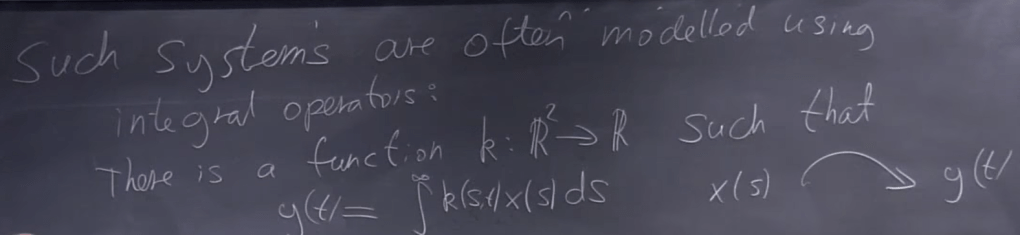 Such systems are often modelled using
integral operators:
There is a function k: ℝ² → ℝ such that
y(t) = ∫^∞ k(s,t)x(s)ds x(s) ↷ y(t)